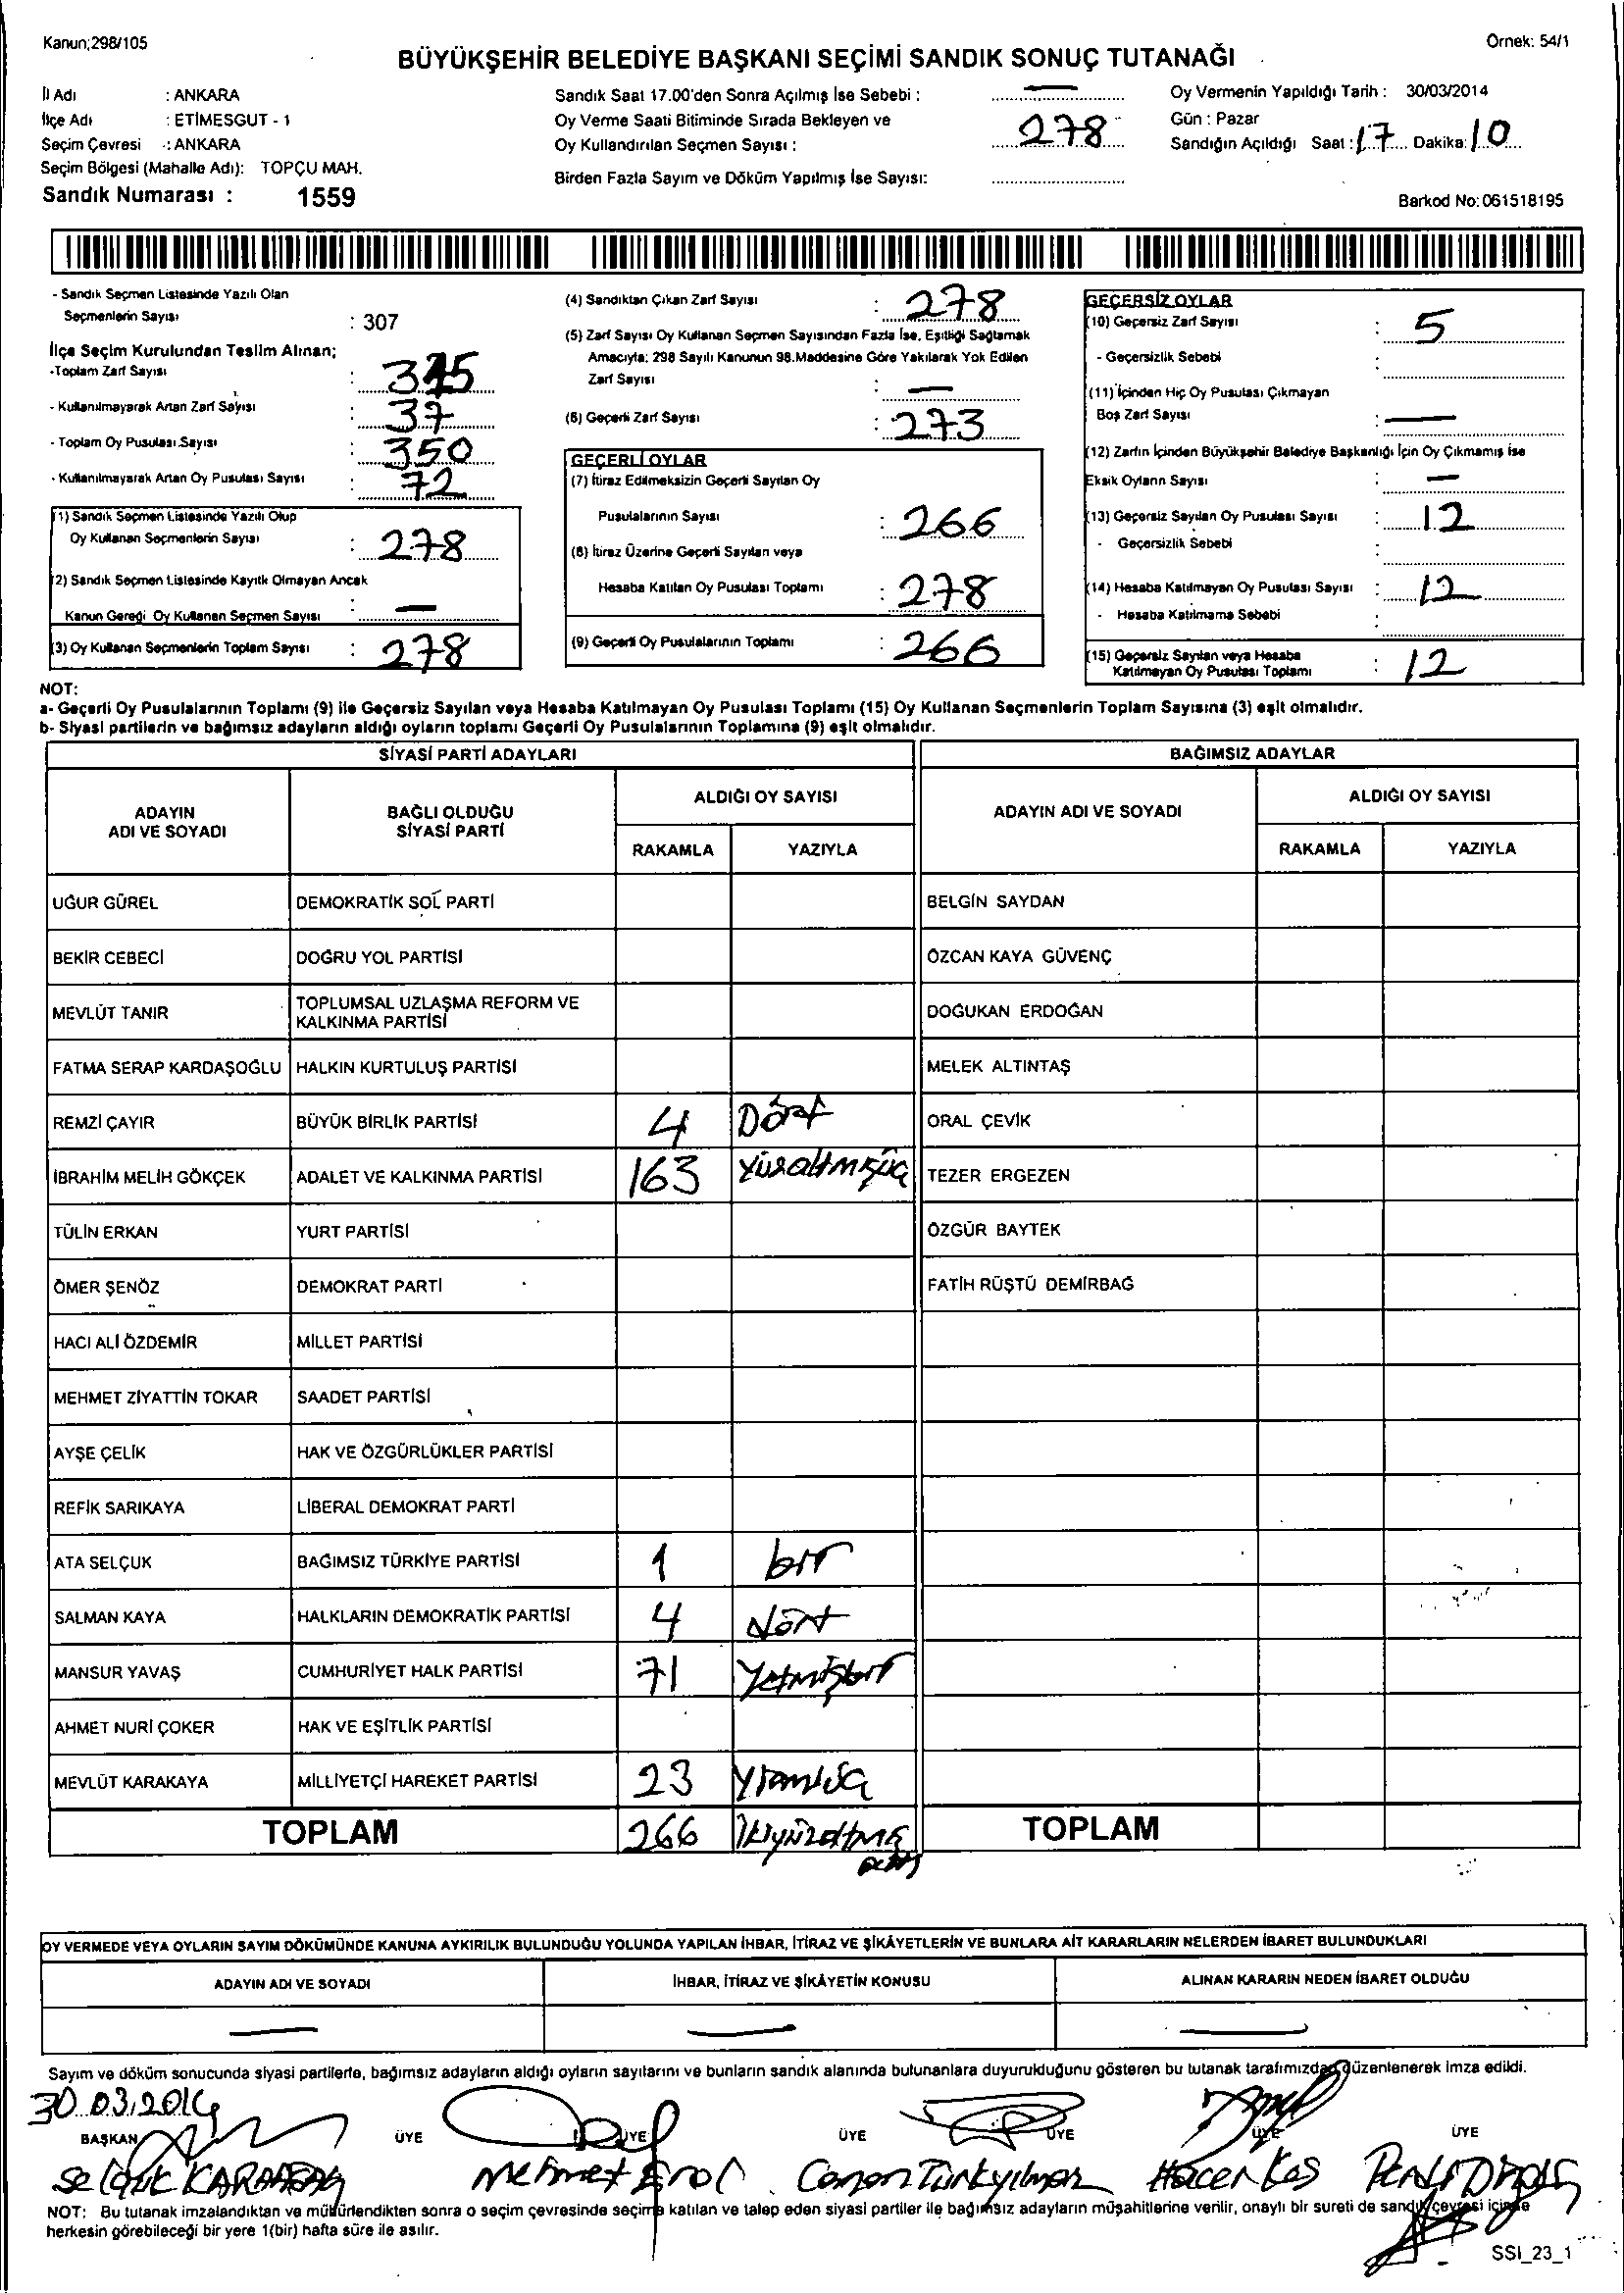 Kanun;298/105
Örnek: 54/1
BÜYÜKŞEHİR BELEDİYE BAŞKANI SEÇİMİ SANDIK SONUÇ TUTANAĞI
İl Adı : ANKARA
İlçe Adı : ETİMESGUT - 1
Seçim Çevresi : ANKARA
Seçim Bölgesi (Mahalle Adı): TOPÇU MAH.
Sandık Numarası : 1559
Sandık Saat 17.00'den Sonra Açılmış İse Sebebi : —
Oy Verme Saati Bitiminde Sırada Bekleyen ve
Oy Kullandırılan Seçmen Sayısı : 278
Birden Fazla Sayım ve Döküm Yapılmış İse Sayısı:
Oy Vermenin Yapıldığı Tarih : 30/03/2014
Gün : Pazar
Sandığın Açıldığı Saat : 17 Dakika: 10
Barkod No: 061518195
- Sandık Seçmen Listesinde Yazılı Olan
Seçmenlerin Sayısı : 307
İlçe Seçim Kurulundan Teslim Alınan;
-Toplam Zarf Sayısı :
- Kullanılmayarak Artan Zarf Sayısı : 37
- Toplam Oy Pusulası Sayısı : 350
- Kullanılmayarak Artan Oy Pusulası Sayısı : 72
(1) Sandık Seçmen Listesinde Yazılı Olup
Oy Kullanan Seçmenlerin Sayısı : 278
(2) Sandık Seçmen Listesinde Kayıtlı Olmayan Ancak
Kanun Gereği Oy Kullanan Seçmen Sayısı : —
(3) Oy Kullanan Seçmenlerin Toplam Sayısı : 278
(4) Sandıktan Çıkan Zarf Sayısı : 278
(5) Zarf Sayısı Oy Kullanan Seçmen Sayısından Fazla İse, Eşitliği Sağlamak
Amacıyla; 298 Sayılı Kanunun 98.Maddesine Göre Yakılarak Yok Edilen
Zarf Sayısı : —
(6) Geçerli Zarf Sayısı : 273
GEÇERLİ OYLAR
(7) İtiraz Edilmeksizin Geçerli Sayılan Oy
Pusulalarının Sayısı : 266
(8) İtiraz Üzerine Geçerli Sayılan veya
Hesaba Katılan Oy Pusulası Toplamı : 278
(9) Geçerli Oy Pusulalarının Toplamı : 266
GEÇERSİZ OYLAR
(10) Geçersiz Zarf Sayısı : 5
- Geçersizlik Sebebi :
(11) İçinden Hiç Oy Pusulası Çıkmayan
Boş Zarf Sayısı : —
(12) Zarfın İçinden Büyükşehir Belediye Başkanlığı İçin Oy Çıkmamış İse
Eksik Oyların Sayısı : —
(13) Geçersiz Sayılan Oy Pusulası Sayısı : 12
- Geçersizlik Sebebi :
(14) Hesaba Katılmayan Oy Pusulası Sayısı : 12
- Hesaba Katılmama Sebebi :
(15) Geçersiz Sayılan veya Hesaba
Katılmayan Oy Pusulası Toplamı : 12
NOT:
a- Geçerli Oy Pusulalarının Toplamı (9) ile Geçersiz Sayılan veya Hesaba Katılmayan Oy Pusulası Toplamı (15) Oy Kullanan Seçmenlerin Toplam Sayısına (3) eşit olmalıdır.
b- Siyasi partilerin ve bağımsız adayların aldığı oyların toplamı Geçerli Oy Pusulalarının Toplamına (9) eşit olmalıdır.
SİYASİ PARTİ ADAYLARI BAĞIMSIZ ADAYLAR
ADAYIN ADI VE SOYADI BAĞLI OLDUĞU SİYASİ PARTİ ALDIĞI OY SAYISI ADAYIN ADI VE SOYADI ALDIĞI OY SAYISI
RAKAMLA YAZIYLA RAKAMLA YAZIYLA
UĞUR GÜREL DEMOKRATİK SOL PARTİ BELGİN SAYDAN
BEKİR CEBECİ DOĞRU YOL PARTİSİ ÖZCAN KAYA GÜVENÇ
MEVLÜT TANIR TOPLUMSAL UZLAŞMA REFORM VE KALKINMA PARTİSİ DOĞUKAN ERDOĞAN
FATMA SERAP KARDAŞOĞLU HALKIN KURTULUŞ PARTİSİ MELEK ALTINTAŞ
REMZİ ÇAYIR BÜYÜK BİRLİK PARTİSİ 4 Dört ORAL ÇEVİK
İBRAHİM MELİH GÖKÇEK ADALET VE KALKINMA PARTİSİ 163 Yüzaltmışüç TEZER ERGEZEN
TÜLİN ERKAN YURT PARTİSİ ÖZGÜR BAYTEK
ÖMER ŞENÖZ DEMOKRAT PARTİ FATİH RÜŞTÜ DEMİRBAĞ
HACI ALİ ÖZDEMİR MİLLET PARTİSİ
MEHMET ZİYATTİN TOKAR SAADET PARTİSİ
AYŞE ÇELİK HAK VE ÖZGÜRLÜKLER PARTİSİ
REFİK SARIKAYA LİBERAL DEMOKRAT PARTİ
ATA SELÇUK BAĞIMSIZ TÜRKİYE PARTİSİ 1 bir
SALMAN KAYA HALKLARIN DEMOKRATİK PARTİSİ 4 dört
MANSUR YAVAŞ CUMHURİYET HALK PARTİSİ 71 Yetmişbir
AHMET NURİ ÇOKER HAK VE EŞİTLİK PARTİSİ
MEVLÜT KARAKAYA MİLLİYETÇİ HAREKET PARTİSİ 23
TOPLAM 266 İkiyüzaltmış altı TOPLAM
OY VERMEDE VEYA OYLARIN SAYIM DÖKÜMÜNDE KANUNA AYKIRILIK BULUNDUĞU YOLUNDA YAPILAN İHBAR, İTİRAZ VE ŞİKÂYETLERİN VE BUNLARA AİT KARARLARIN NELERDEN İBARET BULUNDUKLARI
ADAYIN ADI VE SOYADI İHBAR, İTİRAZ VE ŞİKÂYETİN KONUSU ALINAN KARARIN NEDEN İBARET OLDUĞU
— — —
Sayım ve döküm sonucunda siyasi partilerle, bağımsız adayların aldığı oyların sayılarını ve bunların sandık alanında bulunanlara duyurulduğunu gösteren bu tutanak tarafımızdan düzenlenerek imza edildi.
30.03.2014
BAŞKAN ÜYE ÜYE ÜYE ÜYE ÜYE ÜYE
Selçuk Mehmet Erol Canan Türkyılmaz Hacer Kaş
NOT: Bu tutanak imzalandıktan ve mühürlendikten sonra o seçim çevresinde seçime katılan ve talep eden siyasi partiler ile bağımsız adayların müşahitlerine verilir, onaylı bir sureti de sandık çevresi içinde
herkesin görebileceği bir yere 1(bir) hafta süre ile asılır.
SSI_23_1